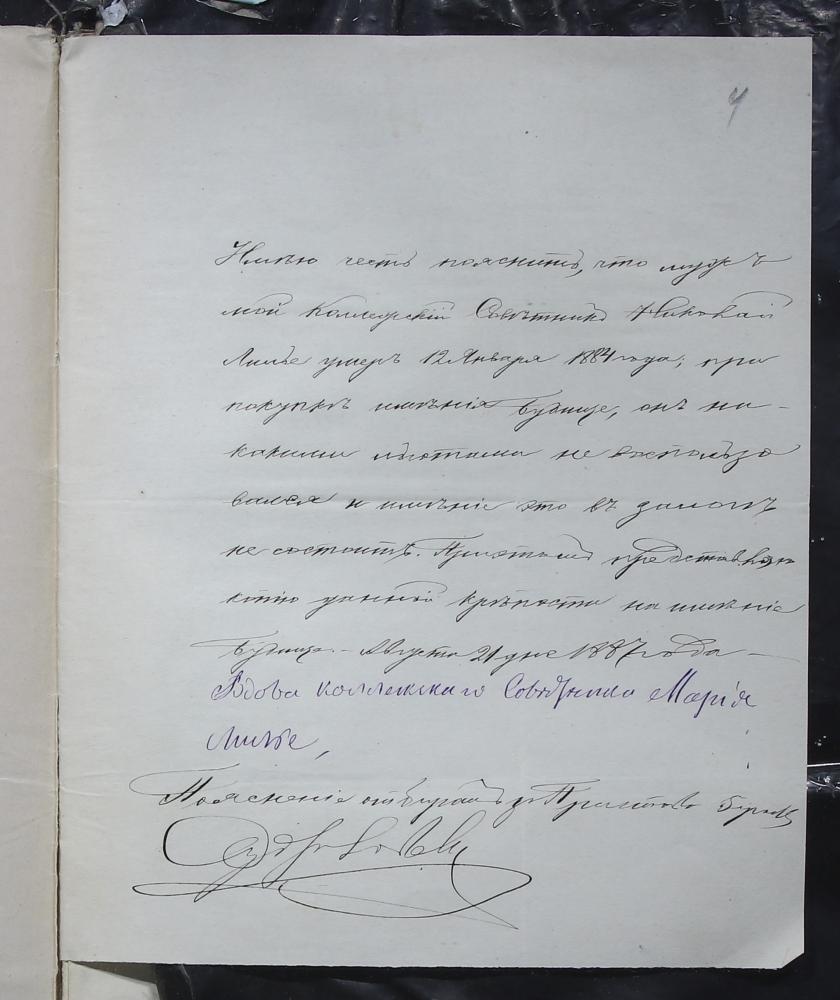 4
Имѣю честь пояснить, что мужъ
мой Коллежскій Совѣтникъ Николай
Лилье умеръ 12 Января 1884 года; при
покупкѣ имѣнія Будище, онъ ни-
какими льготами не воспользо
вался и имѣніе это въ залогѣ
не состоитъ. При этомъ представляю
копію данной крѣпости на имѣніе
Будище. - Августа 21 дня 1887 года -
Вдова коллежскаго Совѣтника Марія
Лилье,
Поясненіе отбиралъ Пристава